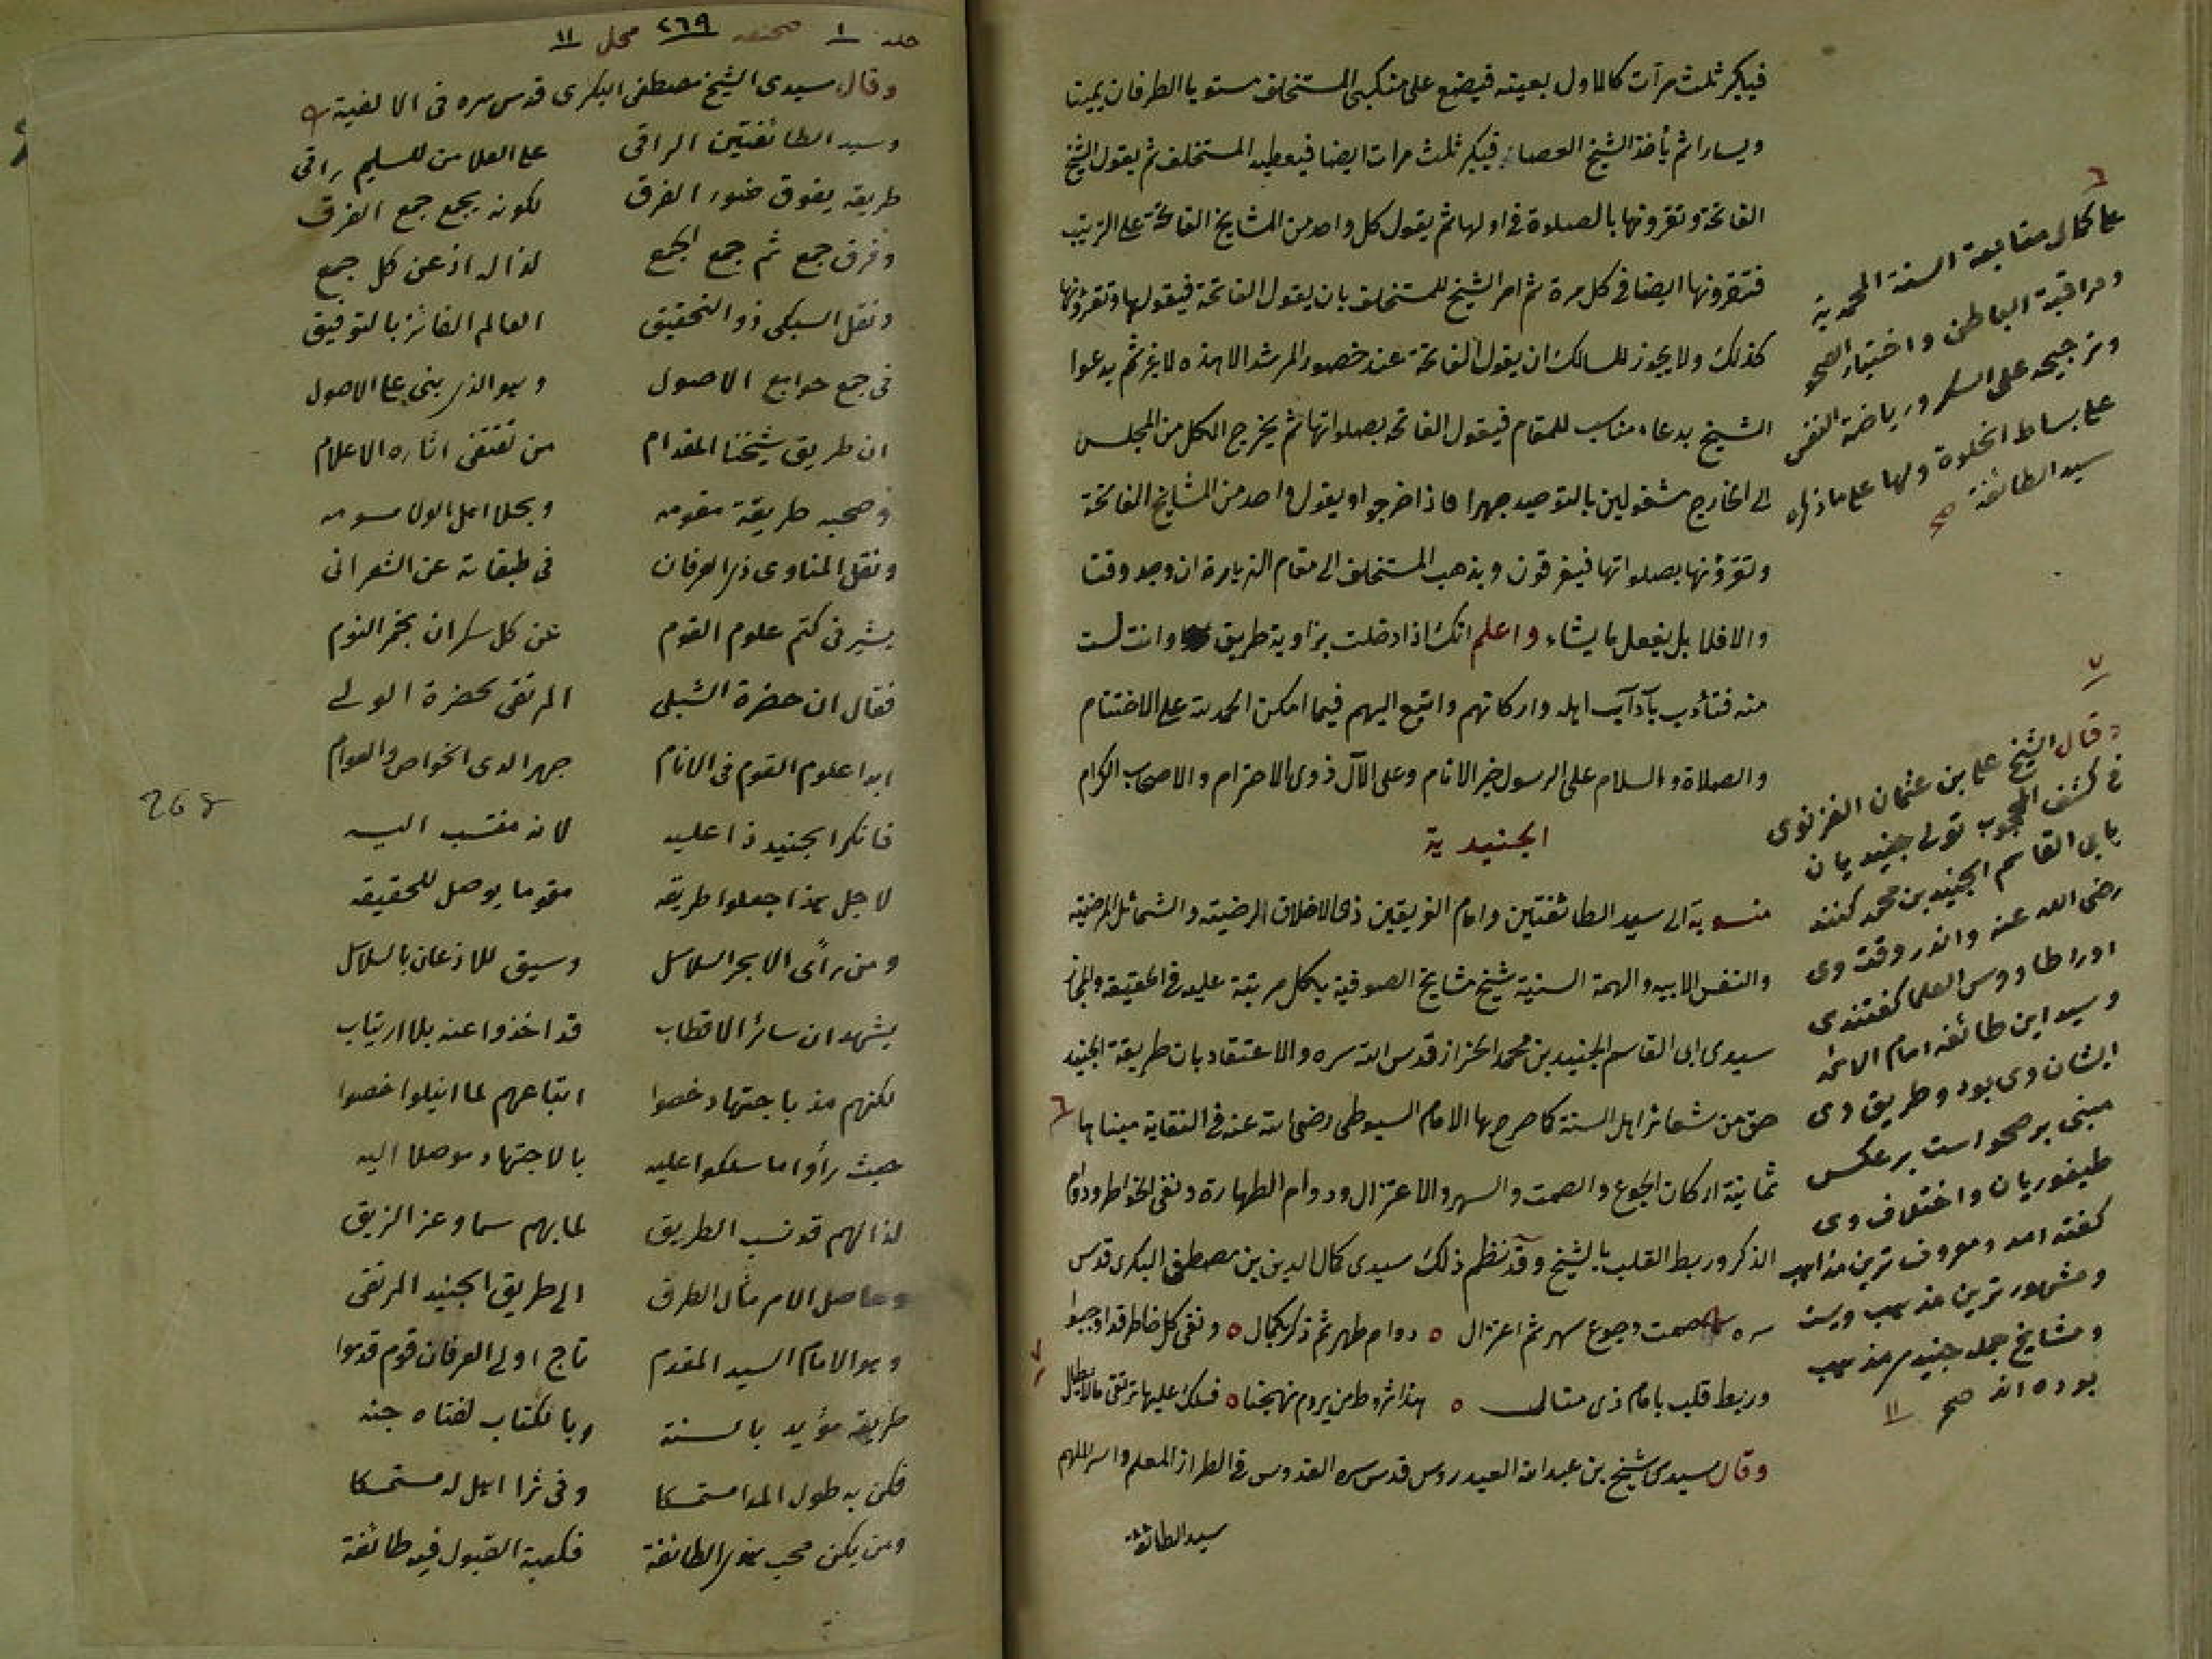 فيكبر ثلث مرآت كالاول بعينه فيضع على منكبى المستخلف مستويا الطرفان يمينا
ويسارا ثم يأخذ الشيخ العصاء فيكبر ثلث مرات ايضا فيعطيه المستخلف ثم يقول الشيخ
الفاتحة وتقرونها بالصلوة فى اولها ثم يقول كل واحد من المشايخ الفاتحة على الترتيب
فتقرونها ايضا فى كل مرة ثم امر الشيخ للمستخلف بان يقول الفاتحة فيقولها وتقرؤنها
كذلك ولا يجوز للسالك ان يقول الفاتحة عند حضور المرشد الا هذه لا غير ثم يدعوا
الشيخ بدعاء مناسب للمقام فيقول الفاتحه بصلواتها ثم يخرج الكل من المجلس
الى الخارج مشغولين بالتوحيد جهرا فاذا خرجوا ويقول واحد من المشايخ الفاتحة
وتقرؤنها بصلواتها فيفرقون ويذهب المستخلف الى مقام الزيارة ان وجد وقتا
والا فلا بل يفعل ما يشاء واعلم انك اذا دخلت بزاوية طريق وانت لست
منه فتأدب بآداب اهله واركانهم واتبع اليهم فيما امكن الحمد لله على الاختتام
والصلاة والسلام على الرسول خير الانام وعلى الآل ذوى الاحترام والاصحاب الكرام
الجنيدية
منسوبة الى سيد الطائفتين وامام الفريقين ذى الاخلاق المرضيه والشمائل المرضيه
والنفس الابيه والهمة السنية شيخ مشايخ الصوفية بكل مرتبة عليه فى الحقيقة والمجاز
سيدى ابى القاسم الجنيد بن محمد الخزاز قدس الله سره والاعتقاد بان طريقة الجنيد
حق من شعائر اهل السنة كما صرح بها الامام السيوطى رضى الله عنه فى النقاية مبناها ٦
ثمانية اركان الجوع والصمت والسهر والاعتزال ودوام الطهارة ونفى الخواطر ودوام
الذكر وربط القلب بالشيخ وقد نظم ذلك سيدى كمال الدين بن مصطفى البكرى قدس
سره صمت وجوع سهر ثم اعتزال ٥ دوام طهر ثم ذكر بكمال ٥ ونفى كل خاطر قد اوجبوا
وربط قلب بامام ذى منال ٥ هذا شروط من يروم نهجنا ٥ فسلك عليها ترتقى ٧
وقال سيدى شيخ بن عبد الله العيدروس قدس سره القدوس فى الطراز المعلم واسر اللهم
سيد الطائفة
٦
على كمال متابعة السنة المحمدية
ومراقبة الباطن واختيار الصحو
وترجيحه على السكر ورياضة النفس
على بساط الخلوة ولها على ما ذكره
سيد الطائفة صح
٧
وقال الشيخ على بن عثمان الغزنوى
فى كشف المحجوب تولى جنيديان
بابى القاسم الجنيد بن محمد كنند
رضى الله عنه واندر وقت وى
اورا طاووس العلما كفتندى
وسيد اين طائفه امام الائمه
ايشان وى بود وطريق وى
مبنى بر صحو است بر عكس
طيفوريان واختلاف وى
كفته امد ومعروف ترين مذاهب
ومشهور ترين مذهب ويست
ومشايخ جمله جنيدى مذهب
بوده اند صح ١١
جلد ١ صحيفه ٢٦٩ محل ١١
وقال سيدى الشيخ مصطفى البكرى قدس سره فى الالفية
وسيد الطائفتين الراقى على العلا من للسليم راقى
طريقه يفوق ضوء الفرق لكونه يجمع جمع الفرق
وفرق جمع ثم جمع الجمع لذا له اذعن كل جمع
ونقل السبكى ذو التحقيق العالم الفائز بالتوفيق
فى جمع جوامع الاصول وهو الذى بنى على الاصول
ان طريق شيخنا المقدام من تقتفى اثاره الاعلام
وصحبه طريقة مقومه وبحلا اهل الولا مسومه
ونقل المناوى ذى العرفان فى طبقاته عن الشعرانى
يشير فى كتم علوم القوم عن كل سكران بخمر النوم
فقال ان حضرة الشبلى المرتقى لحضرة الولى
ابدا علوم القوم فى الانام جهرا لدى الخواص والعوام
فانكر الجنيد ذا عليه لانه منتسب اليه
لاجل هذا جعلوا طريقه مقوما يوصل للحقيقه
ومن رأى الابحر السلاسل وسيق للاذعان بالسلاسل
يشهد ان سائر الاقطاب قد اخذوا عنه بلا ارتياب
لكنهم مذ باجتهاد خصوا اتباعهم لما انيلوا خصوا
حيث رأوا ما سلكوا عليه بالاجتهاد موصلا اليه
لذا لهم قد نسب الطريق لما بهم سما وعز الزيق
وحاصل الامر مآل الطرق الى طريق الجنيد المرتقى
وهو الامام السيد المقدم تاج اولى العرفان قوم قدموا
طريقه مؤيد بالسنه وبالكتاب لفتاه جنه
فكن به طول المدا مستمسكا وفى ثرا اهل له مستمسكا
ومن يكن محب هذى الطائفة فكعبة القبول فيه طائفة
268